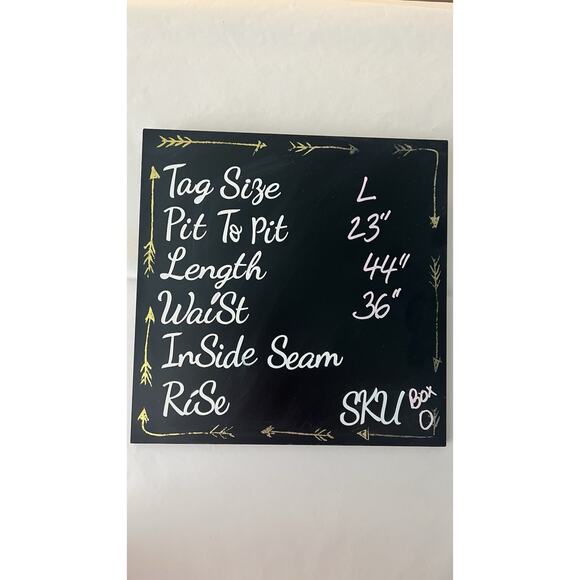 Tag Size L
Pit To Pit 23"
Length 44"
WaiSt 36"
InSide Seam
RiSe
SKU Box O